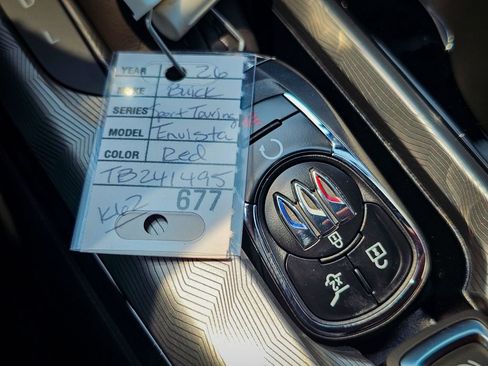 D
L
YEAR 26
MAKE Buick
SERIES Sport Touring
MODEL Envista
COLOR Red
TB241495
677